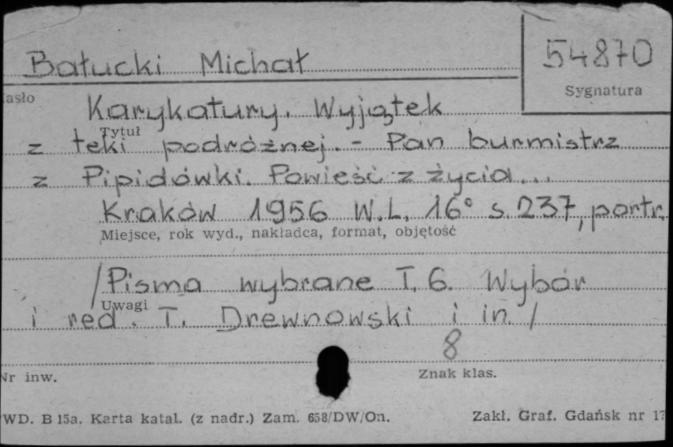 Bałucki Michał
54870
asło
Sygnatura
Karykatury. Wyjątek
Tytuł
z teki podróżnej. - Pan burmistrz
z Pipidówki. Powieść z życia...
Kraków 1956 W.L. 16° s. 237, portr.
Miejsce, rok wyd., nakładca, format, objętość
/Pisma wybrane T. 6. Wybór
Uwagi
i red. T. Drewnowski i in./
8
Nr inw.
Znak klas.
WD. B 15a. Karta katal. (z nadr.) Zam. 658/DW/On.
Zakł. Graf. Gdańsk nr 17